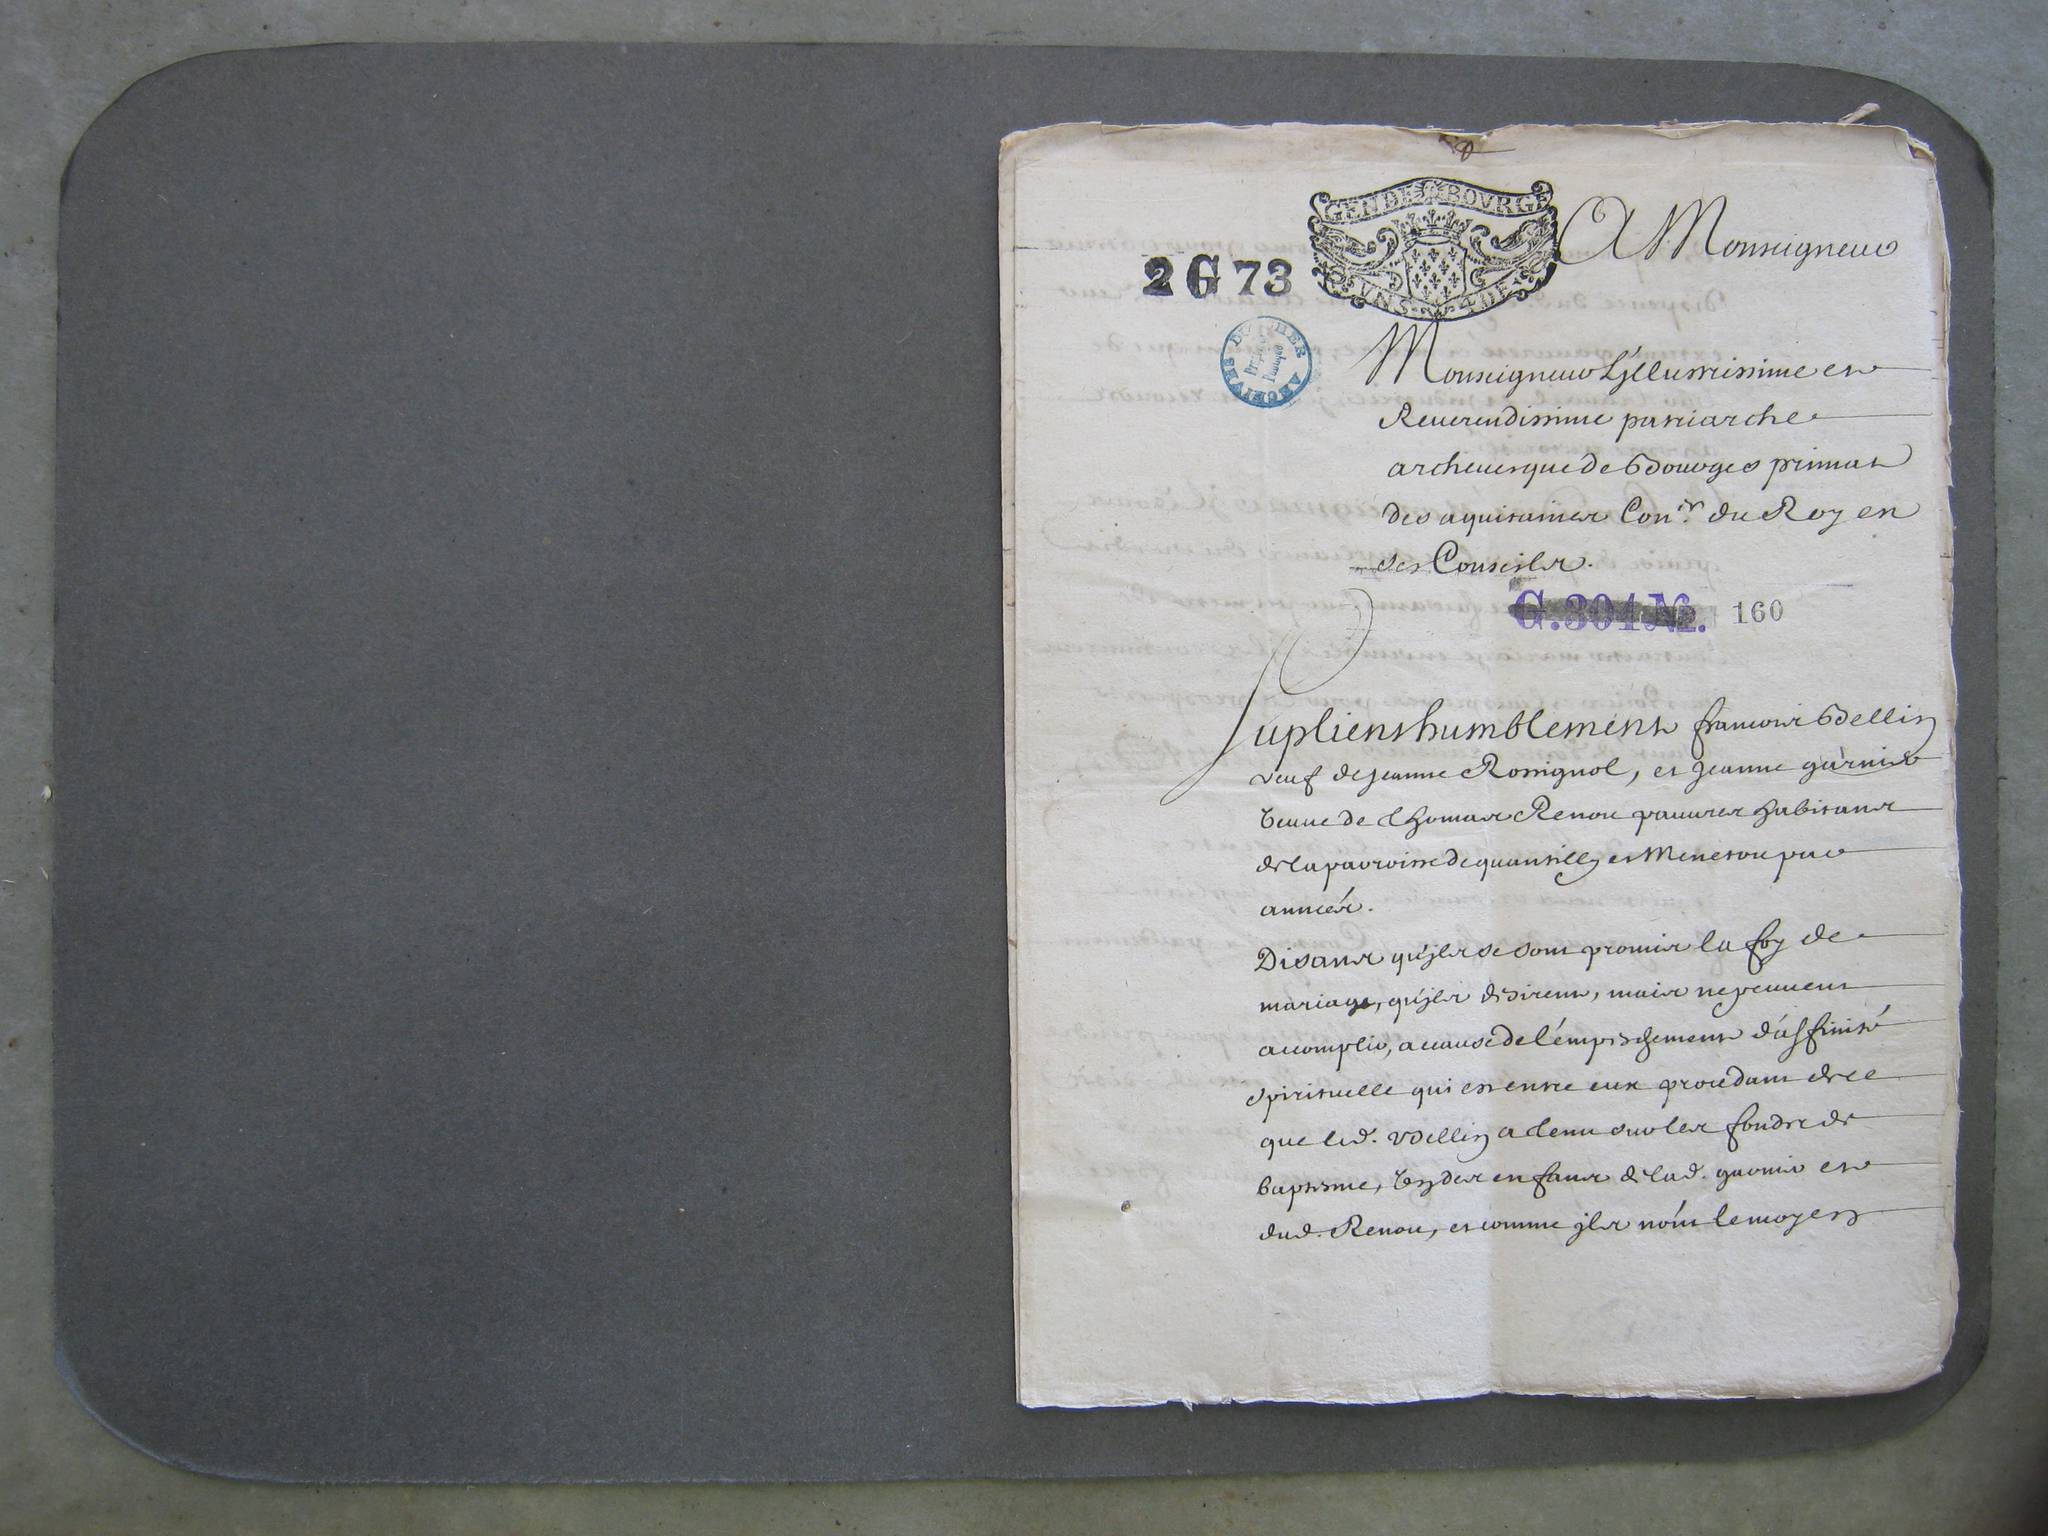 GEN DE BOVRGE
VN S 4 DE
A Monseigneur
2 G 73
ARCHIVES DU CHER
Monseigneur L'jllustrissime et
Reuerendissime patriarche
archeuesque de Bourges primat
des aquitaines Con.er du Roy en
ses Conseils.
G.304 No. 160
Suplient humblement francois Bellin
veuf de jeanne Rossignol, et jeanne garnier
veuue de thomas Renou pauures habitans
de la parroisse de quantilly et Menetou par
années.
Disans qu'jls se sont promis la foy de
mariage, qu'jls desirent, mais ne peuuent
accomplir, a cause de l'émpeschement d'affinité
spirituelle qui est entre eux procedant de ce
que led. Bellin a tenu sur les fonds de
baptesme, vn des enfans de lad. garnier et
dud. Renou, et comme jls n'ont le moyen